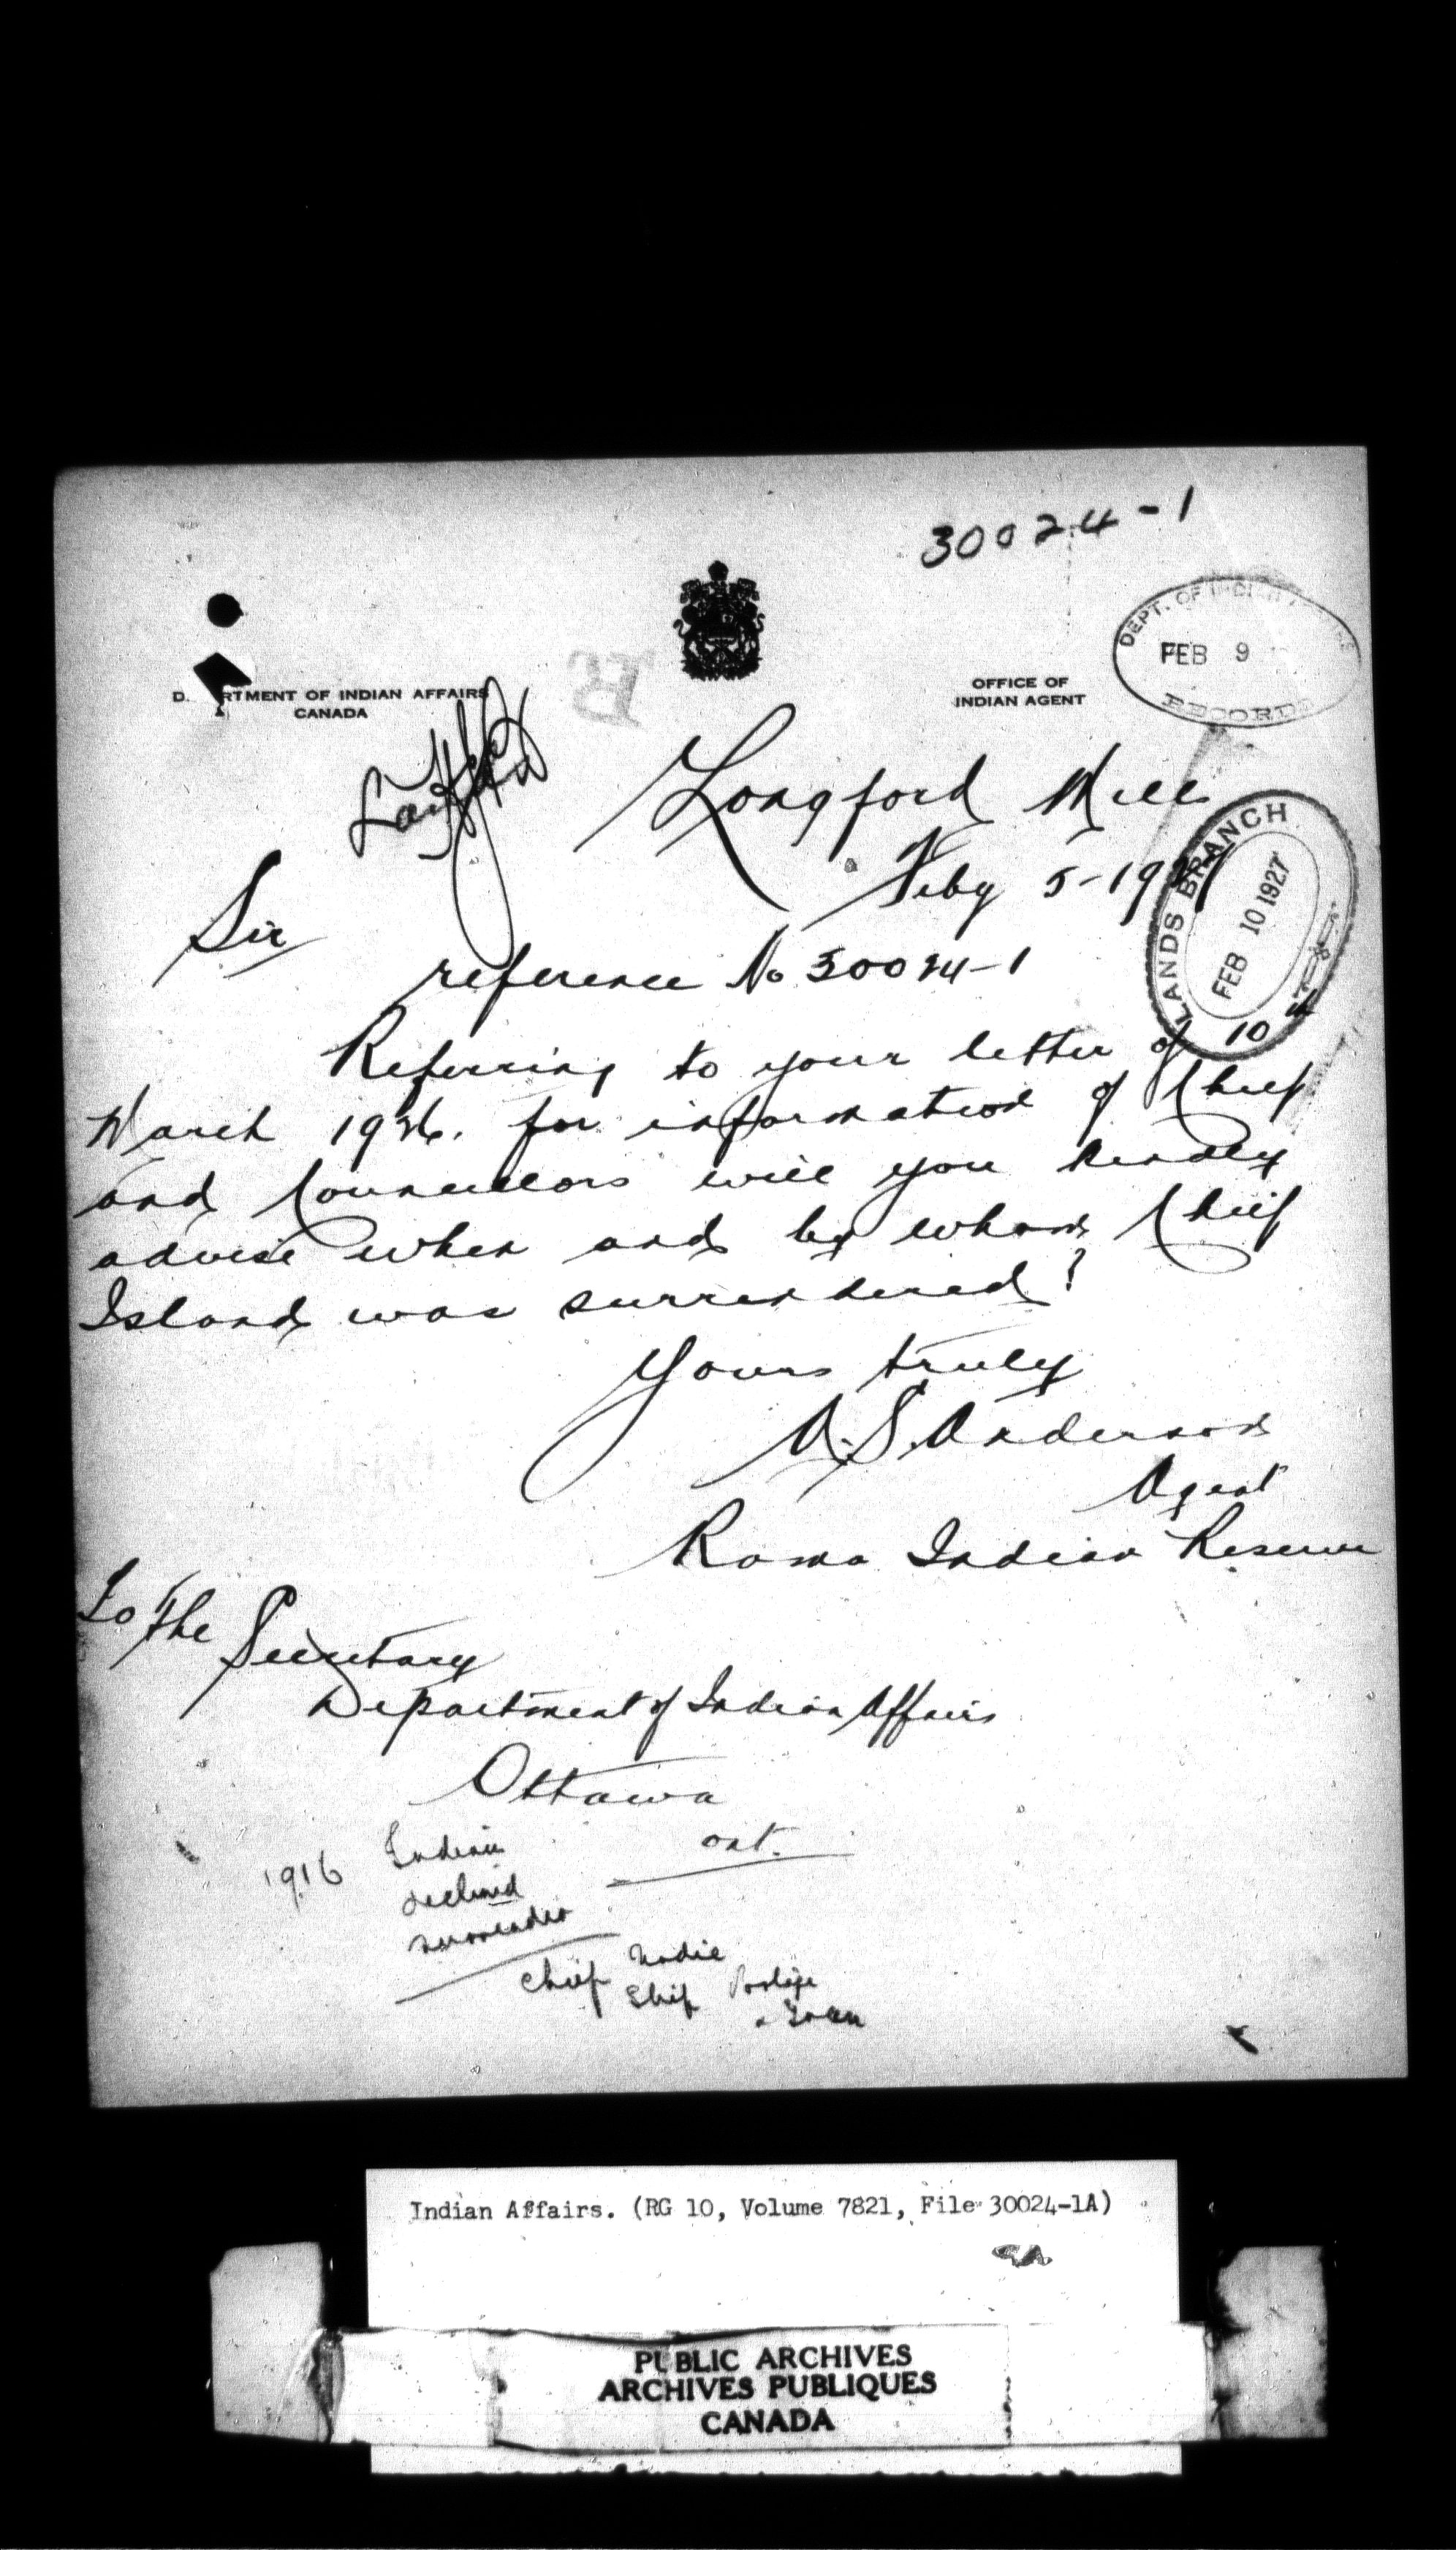 30024-1
DEPT. OF INDIAN
FEB 9
RECORDS
DEPARTMENT OF INDIAN AFFAIRS
CANADA
R
OFFICE OF
INDIAN AGENT
Longford Mills
Feby 5-1927
LANDS BRANCH
FEB 10 1927
Sir
reference No 30024-1
Referring to your letter of 10th
March 1926. for information of Chief
and Councillors will you kindly
advise when and by whom Chief
Island was surrendered?
Yours truly
A.S. Anderson
Agent
Rama Indian Reserve
To the
Secretary
Department of Indian Affairs
Ottawa
Ont.
1916 Indians
declined
surrender
Chief
Indian Affairs. (RG 10, Volume 7821, File 30024-1A)
PUBLIC ARCHIVES
ARCHIVES PUBLIQUES
CANADA